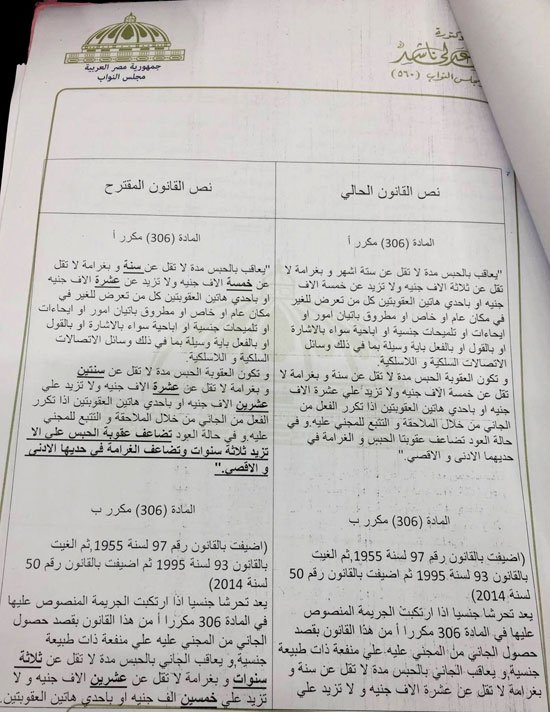 جمهورية مصر العربية
مجلس النواب
مجلس النواب (٥٦٠)
نص القانون الحالي
المادة (306) مكرر أ
"يعاقب بالحبس مدة لا تقل عن ستة اشهر و بغرامة لا
تقل عن ثلاثة الاف جنيه ولا تزيد عن خمسة الاف
جنيه او باحدي هاتين العقوبتين كل من تعرض للغير
في مكان عام او خاص او مطروق باتيان امور او
ايحاءات او تلميحات جنسية او اباحية سواء بالاشارة
او بالقول او بالفعل باية وسيلة بما في ذلك وسائل
الاتصالات السلكية و اللاسلكية.
و تكون العقوبة الحبس مدة لا تقل عن سنة و بغرامة لا
تقل عن خمسة الاف جنيه ولا تزيد علي عشرة الاف
جنيه او باحدي هاتين العقوبتين اذا تكرر الفعل من
الجاني من خلال الملاحقة و التتبع للمجني عليه.و في
حالة العود تضاعف عقوبتا الحبس و الغرامة في
حديهما الادنى و الاقصي."
المادة (306) مكرر ب
(اضيفت بالقانون رقم 97 لسنة 1955,ثم الغيت
بالقانون 93 لسنة 1995 ثم اضيفت بالقانون رقم 50
لسنة 2014)
يعد تحرشا جنسيا اذا ارتكبت الجريمة المنصوص
عليها في المادة 306 مكررا أ من هذا القانون بقصد
حصول الجاني من المجني عليه علي منفعة ذات طبيعة
جنسية,و يعاقب الجاني بالحبس مدة لا تقل عن سنة و
بغرامة لا تقل عن عشرة الاف جنيه و لا تزيد علي
نص القانون المقترح
المادة (306) مكرر أ
"يعاقب بالحبس مدة لا تقل عن سنة و بغرامة لا تقل
عن خمسة الاف جنيه ولا تزيد عن عشرة الاف جنيه
او باحدي هاتين العقوبتين كل من تعرض للغير في
مكان عام او خاص او مطروق باتيان امور او ايحاءات
او تلميحات جنسية او اباحية سواء بالاشارة او بالقول
او بالفعل باية وسيلة بما في ذلك وسائل الاتصالات
السلكية و اللاسلكية.
و تكون العقوبة الحبس مدة لا تقل عن سنتين
و بغرامة لا تقل عن عشرة الاف جنيه ولا تزيد علي
عشرين الاف جنيه او باحدي هاتين العقوبتين اذا تكرر
الفعل من الجاني من خلال الملاحقة و التتبع للمجني
عليه.و في حالة العود تضاعف عقوبة الحبس علي الا
تزيد ثلاثة سنوات وتضاعف الغرامة في حديها الادنى
و الاقصي."
المادة (306) مكرر ب
(اضيفت بالقانون رقم 97 لسنة 1955,ثم الغيت
بالقانون 93 لسنة 1995 ثم اضيفت بالقانون رقم 50
لسنة 2014)
يعد تحرشا جنسيا اذا ارتكبت الجريمة المنصوص عليها
في المادة 306 مكررا أ من هذا القانون بقصد حصول
الجاني من المجني عليه علي منفعة ذات طبيعة
جنسية,و يعاقب الجاني بالحبس مدة لا تقل عن ثلاثة
سنوات و بغرامة لا تقل عن عشرين الاف جنيه و لا
تزيد علي خمسين الف جنيه او باحدي هاتين العقوبتين